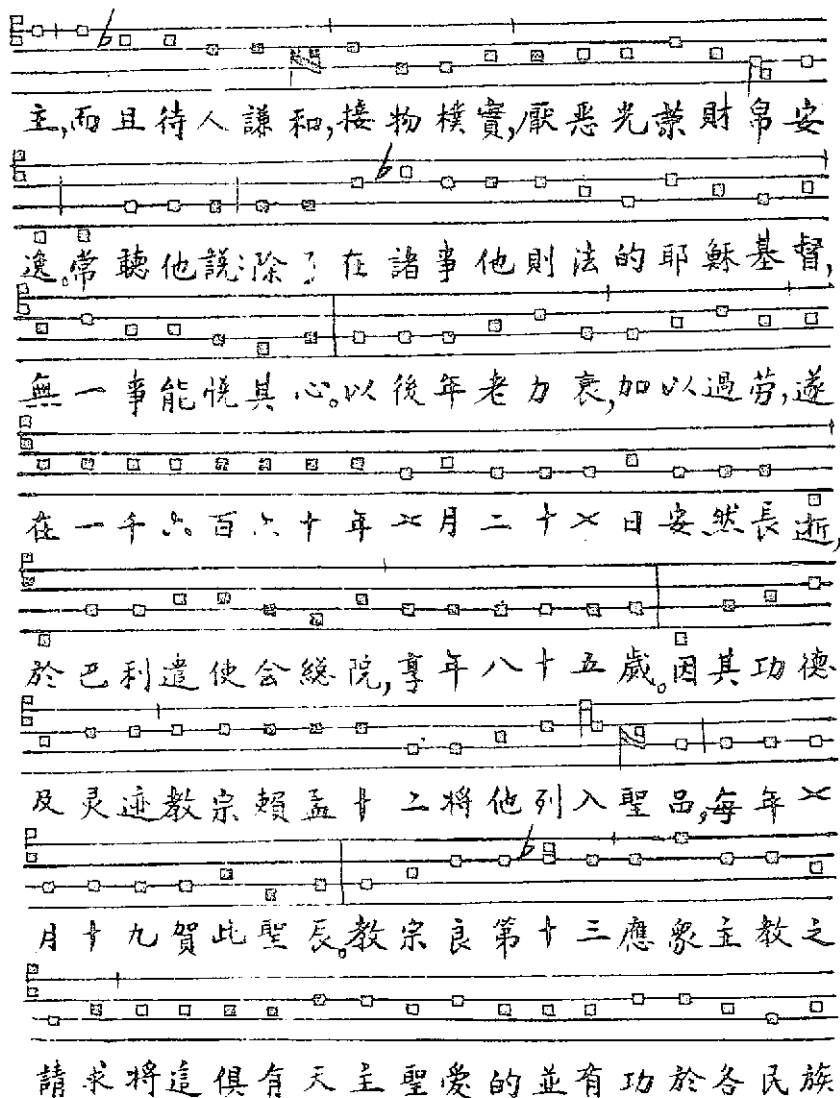 主,而且待人謙和,接物樸實,厭恶光荣財帛安
逸。常聽他說:除了在諸事他則法的耶穌基督,
無一事能悅其心。以後年老力衰,加以過劳,遂
在一千六百六十年七月二十七日安然長逝,
於巴利遣使会総院,享年八十五歲。因其功德
及灵迹教宗賴孟十二將他列入聖品,每年七
月十九賀此聖辰。教宗良第十三應眾主教之
請求將這俱有天主聖爱的並有功於各民族